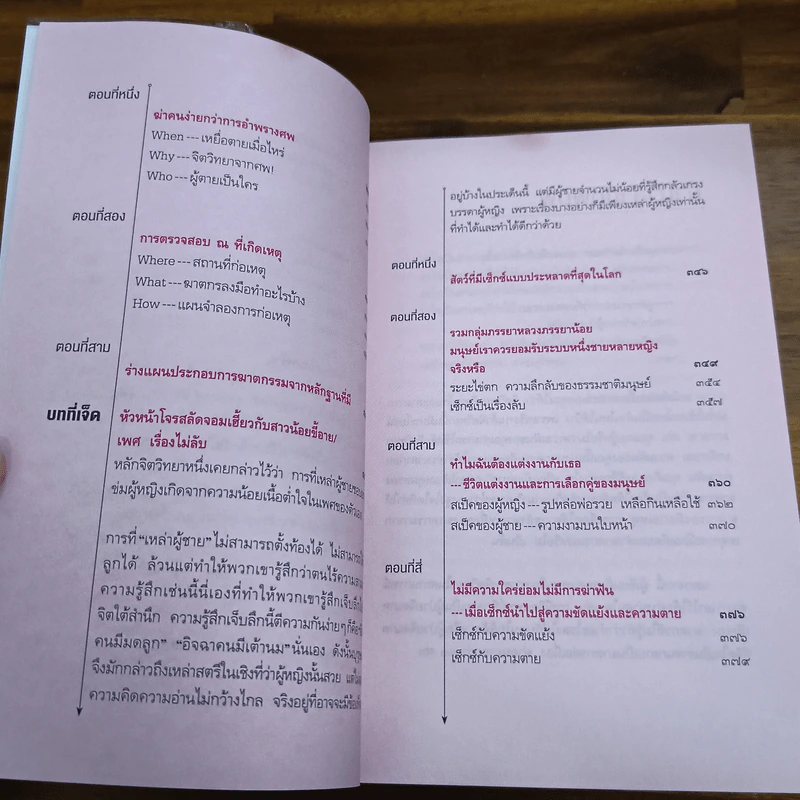 ตอนที่หนึ่ง
ฆ่าคนง่ายกว่าการอำพรางศพ
When---เหยื่อตายเมื่อไหร่
Why---จิตวิทยาจากศพ!
Who---ผู้ตายเป็นใคร
ตอนที่สอง
การตรวจสอบ ณ ที่เกิดเหตุ
Where---สถานที่ก่อเหตุ
What---ฆาตกรลงมือทำอะไรบ้าง
How---แผนจำลองการก่อเหตุ
ตอนที่สาม
ร่างแผนประกอบการฆาตกรรมจากหลักฐานที่มี
บทที่เจ็ด
หัวหน้าโจรสลัดจอมเฮี้ยวกับสาวน้อยขี้อาย/
เพศ เรื่องไม่ลับ
หลักจิตวิทยาหนึ่งเคยกล่าวไว้ว่า การที่เหล่าผู้ชายชอบ
ข่มผู้หญิงเกิดจากความน้อยเนื้อต่ำใจในเพศของตัวเอง
การที่“เหล่าผู้ชาย”ไม่สามารถตั้งท้องได้ ไม่สามารถ
ลูกได้ ล้วนแต่ทำให้พวกเขารู้สึกว่าตนไร้ความสาม
ความรู้สึกเช่นนี้นี่เองที่ทำให้พวกเขารู้สึกเจ็บลึกใ
จิตใต้สำนึก ความรู้สึกเจ็บลึกนี้ตีความกันง่ายๆก็คือ
คนมีมดลูก” “อิจฉาคนมีเต้านม”นั่นเอง ดังนั้น
จึงมักกล่าวถึงเหล่าสตรีในเชิงที่ว่าผู้หญิงนั้นสวย แต่
ความคิดความอ่านไม่กว้างไกล จริงอยู่ที่อาจจะมี
อยู่บ้างในประเด็นนี้ แต่มีผู้ชายจำนวนไม่น้อยที่รู้สึกกลัวเกรง
บรรดาผู้หญิง เพราะเรื่องบางอย่างก็มีเพียงเหล่าผู้หญิงเท่านั้น
ที่ทำได้และทำได้ดีกว่าด้วย
ตอนที่หนึ่ง
สัตว์ที่มีเซ็กซ์แบบประหลาดที่สุดในโลก ๓๔๖
ตอนที่สอง
รวมกลุ่มภรรยาหลวงภรรยาน้อย
มนุษย์เราควรยอมรับระบบหนึ่งชายหลายหญิง
จริงหรือ ๓๔๙
ระยะไข่ตก ความลึกลับของธรรมชาติมนุษย์ ๓๕๔
เซ็กซ์เป็นเรื่องลับ ๓๕๗
ตอนที่สาม
ทำไมฉันต้องแต่งงานกับเธอ
---ชีวิตแต่งงานและการเลือกคู่ของมนุษย์ ๓๖๐
สเป็คของผู้หญิง---รูปหล่อพ่อรวย เหลือกินเหลือใช้ ๓๖๒
สเป็คของผู้ชาย---ความงามบนใบหน้า ๓๗๐
ตอนที่สี่
ไม่มีความใคร่ย่อมไม่มีการฆ่าฟัน
---เมื่อเซ็กซ์นำไปสู่ความขัดแย้งและความตาย ๓๗๖
เซ็กซ์กับความขัดแย้ง ๓๗๖
เซ็กซ์กับความตาย ๓๗๙